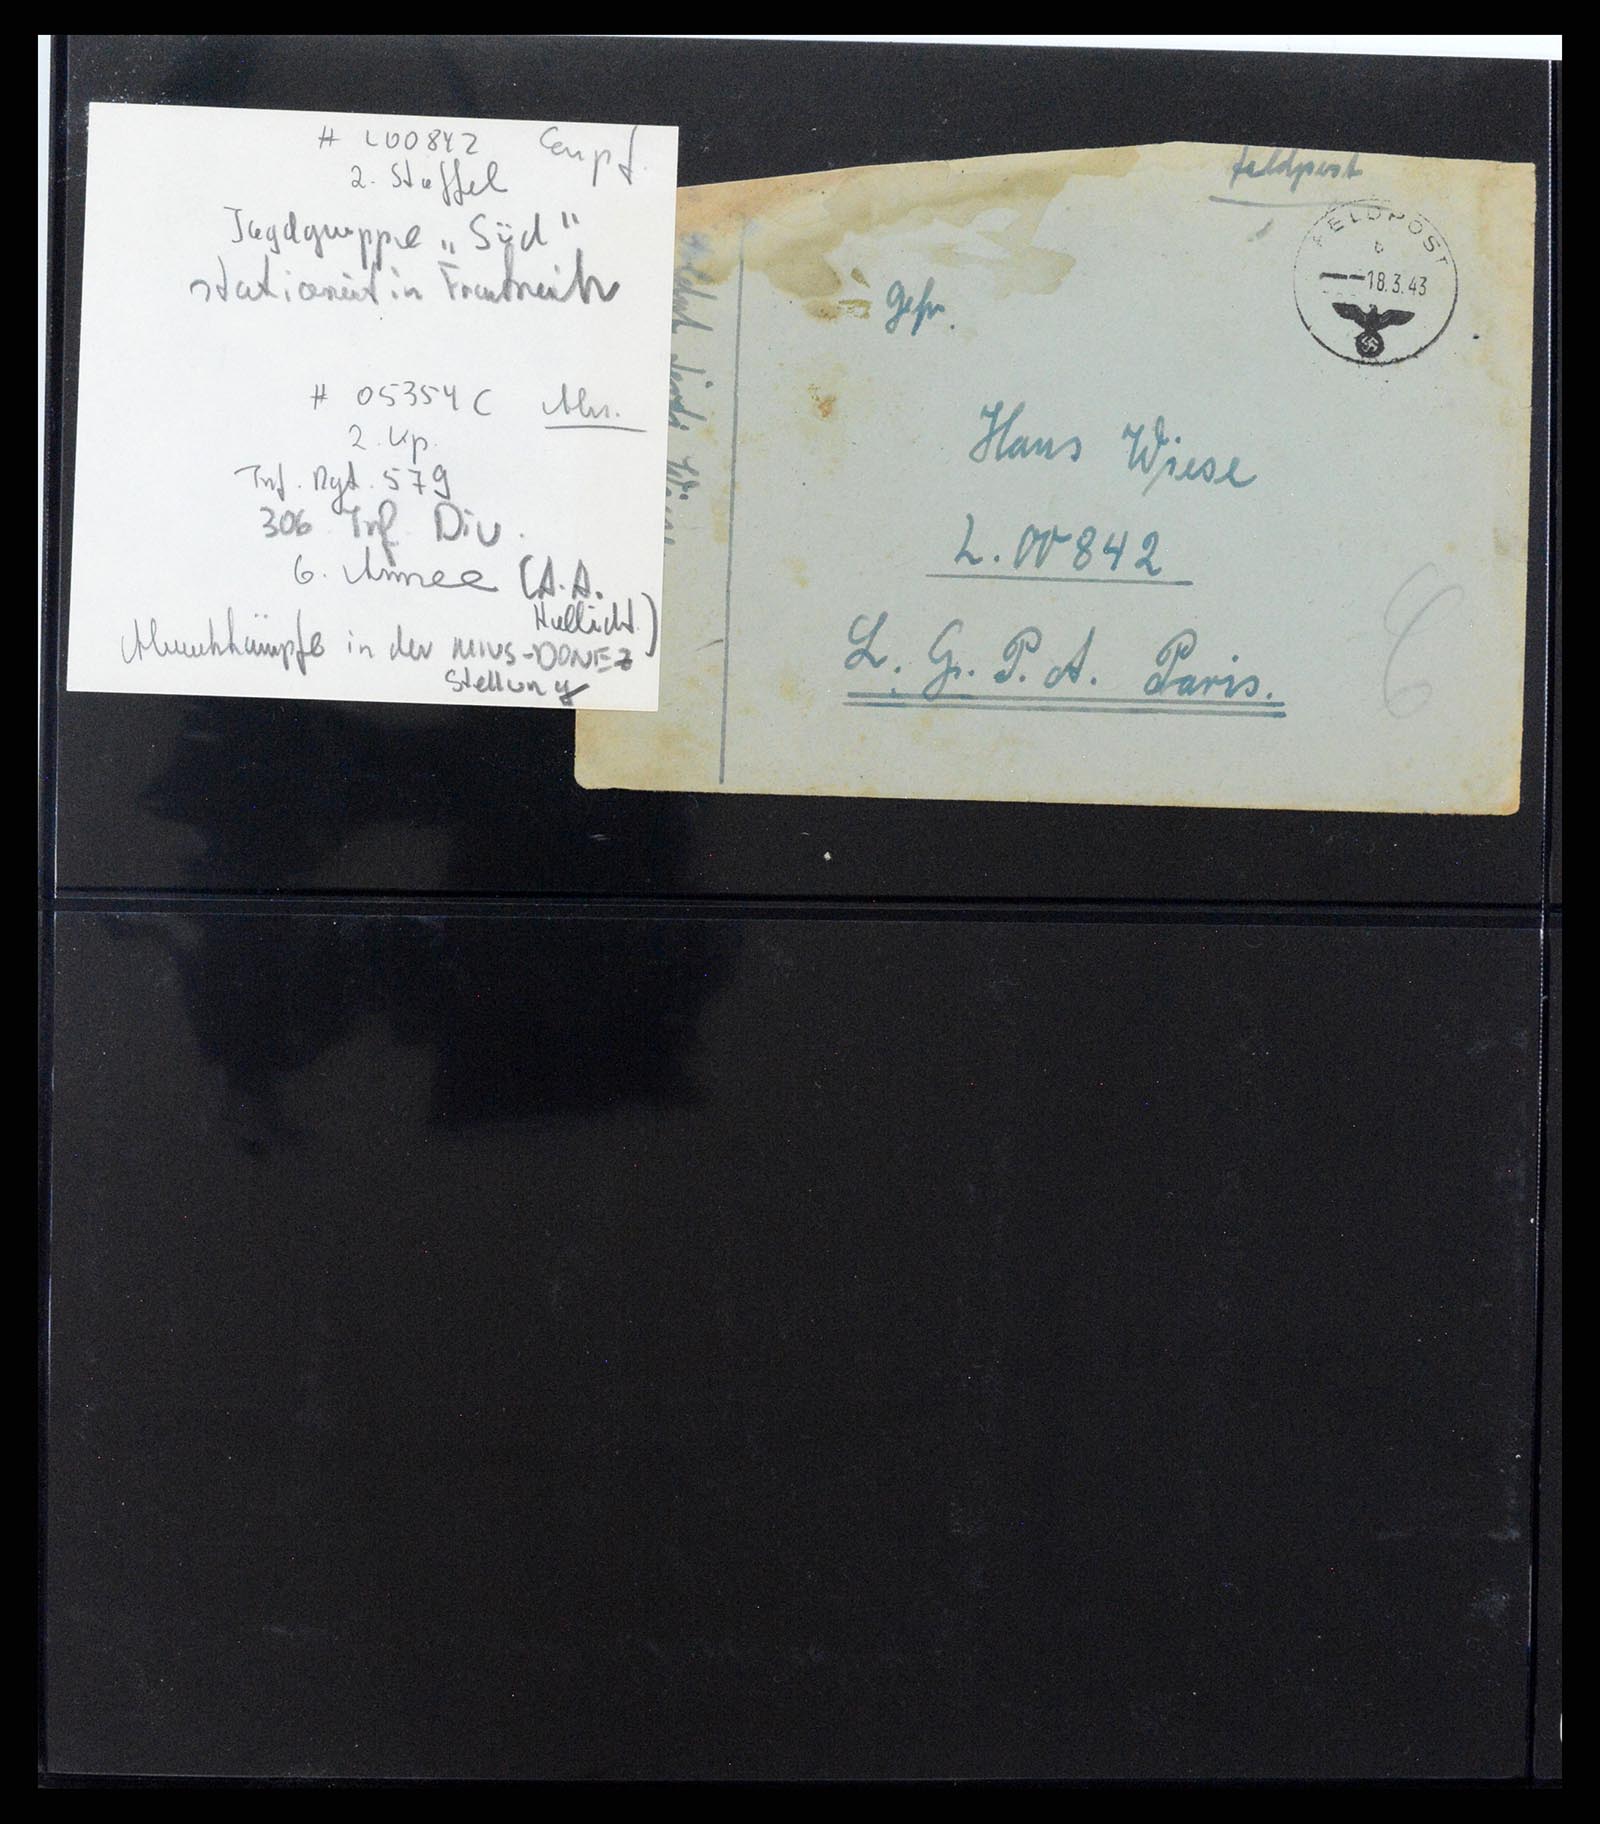 # L00842 Empf.
2. Staffel
Jagdgruppe „Süd"
stationiert in Frankreich
# 05354 C Abs.
2. Kp.
Inf. Rgt. 579
306 Inf. Div.
6. Armee (A.A.
Hollidt)
Abwehrkämpfe in der MIUS-DONEZ
Stellung
Feldpost
FELDPOST
b
-18.3.43
Gefr.
Hans Wiese
L.00842
L. G. P. A. Paris.